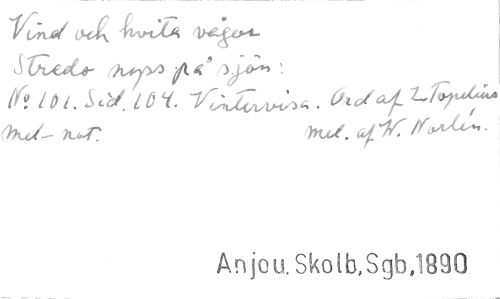 Vind och hvita vågor
Stredo nyss på sjön:
No 101. Sid. 104. Vintervisa. Ord af Z. Topelius
mel-not. mel. af W. Norlén.
Anjou. Skolb, Sgb, 1890